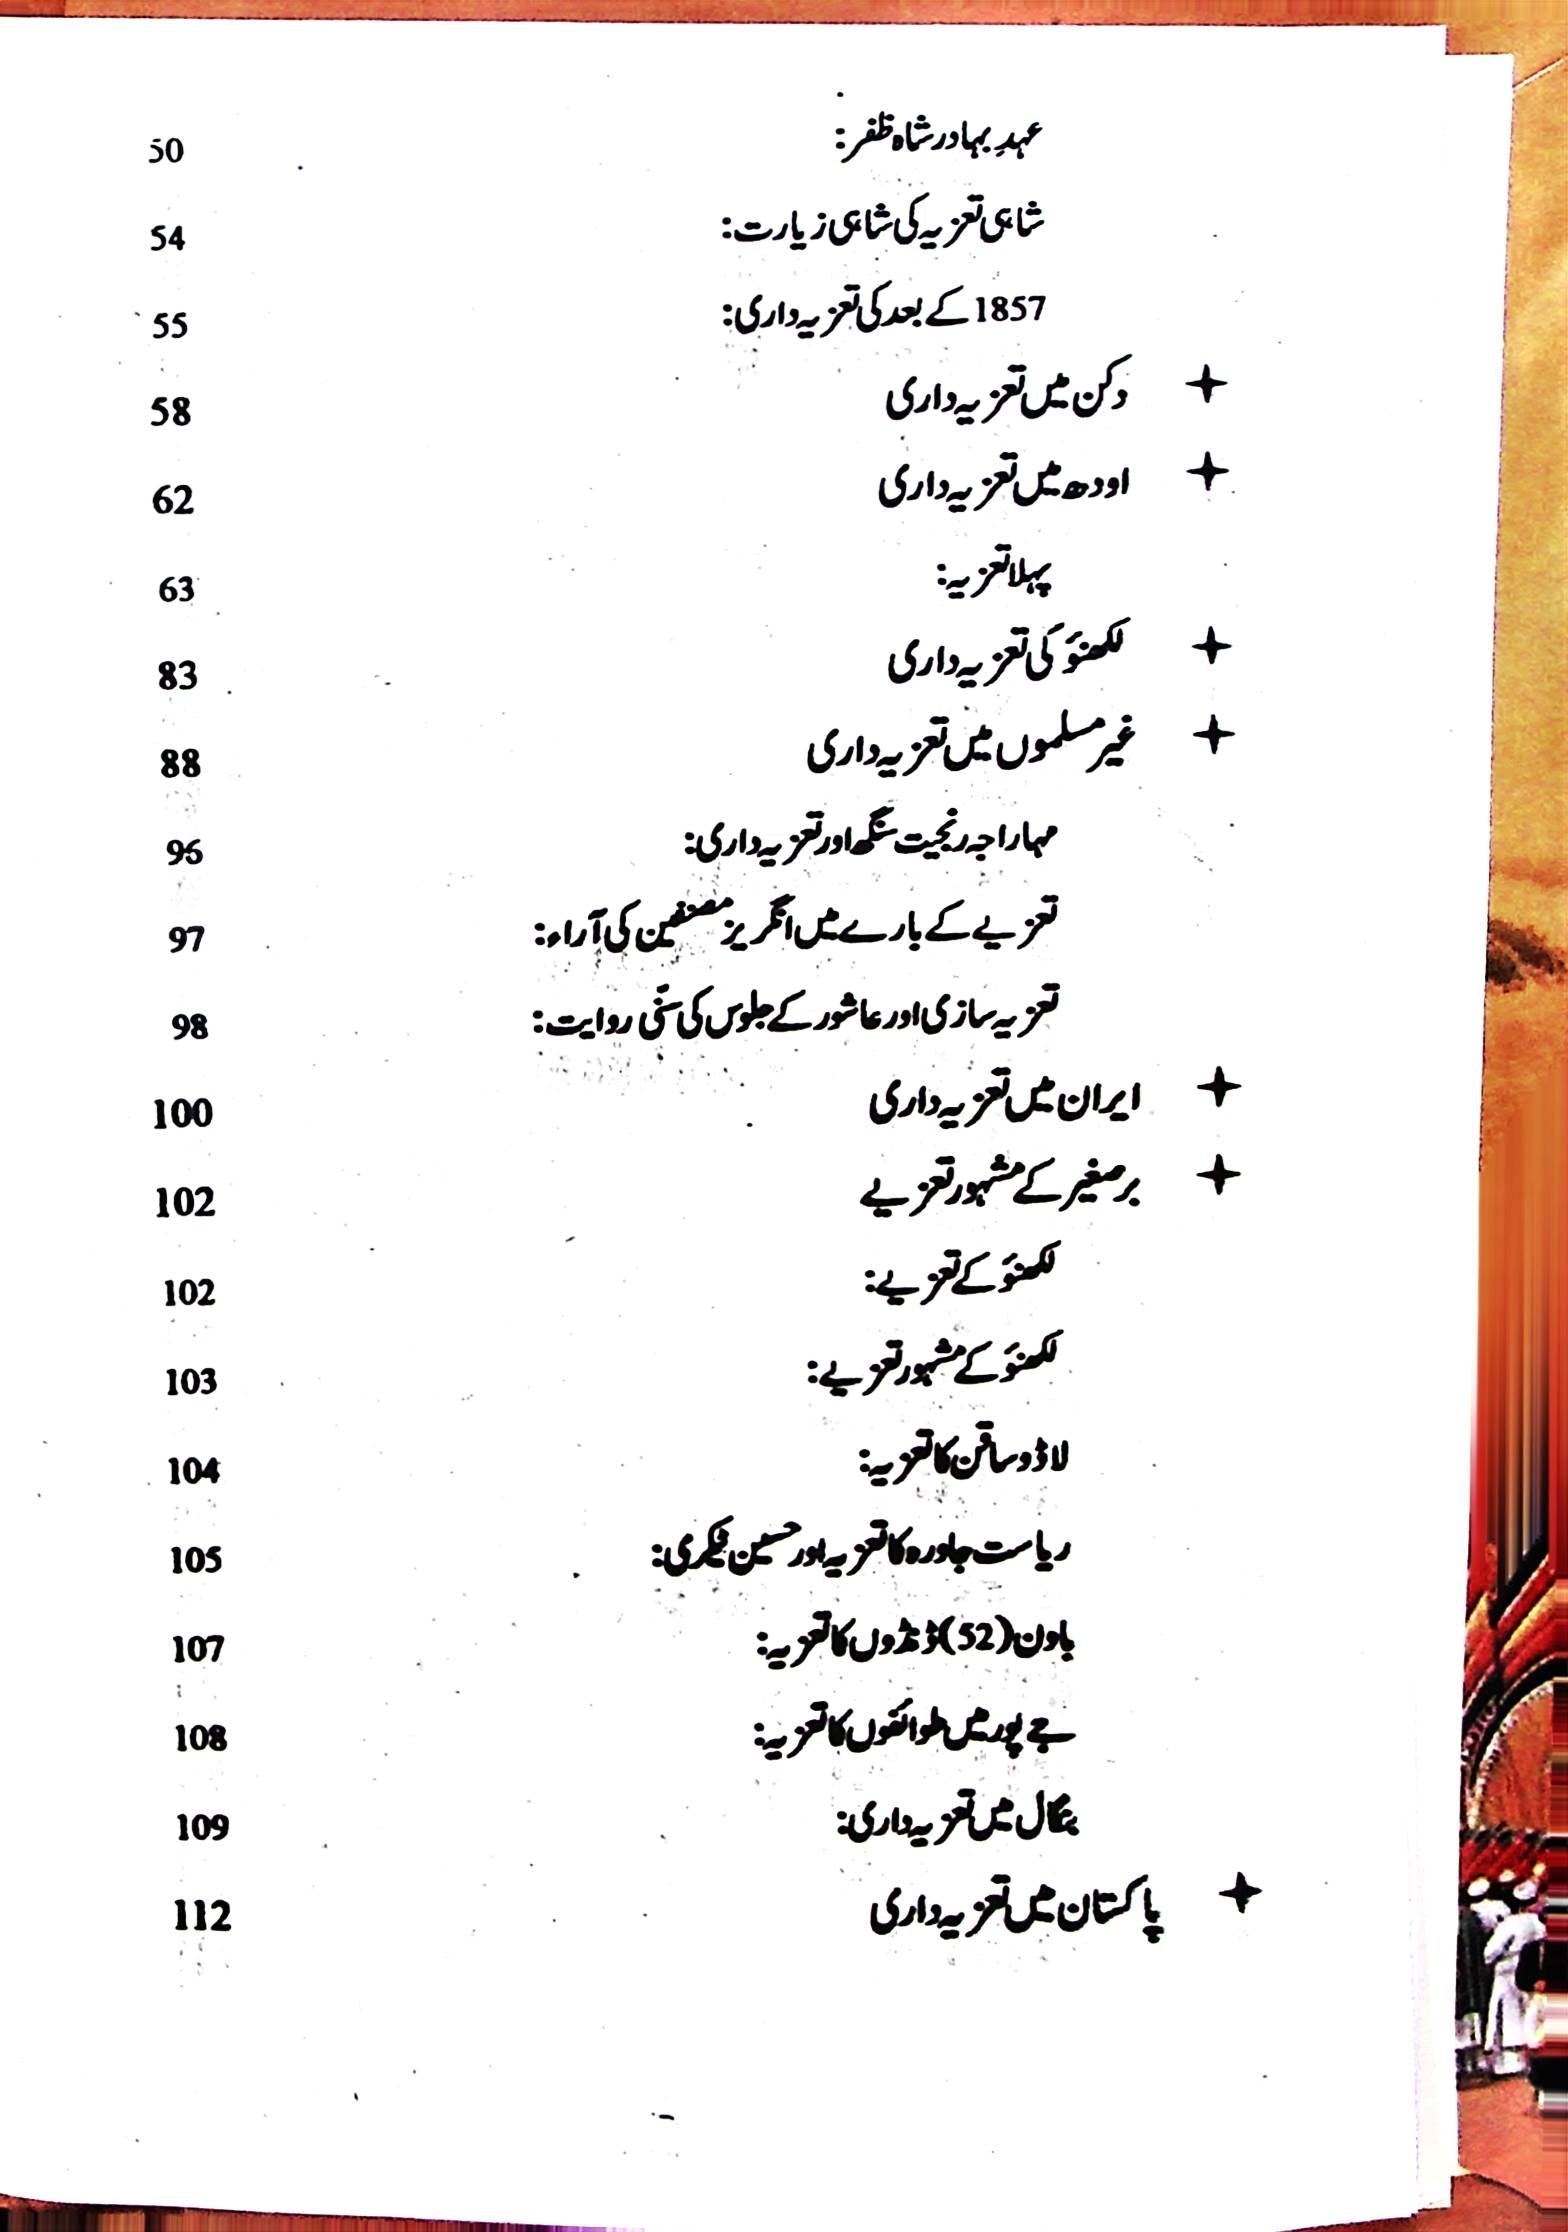 عہدِ بہادر شاہ ظفر: 50
شاہی تعزیہ کی شاہی زیارت: 54
1857 کے بعد کی تعزیہ داری: 55
✦ دکن میں تعزیہ داری 58
✦ اودھ میں تعزیہ داری 62
پہلا تعزیہ: 63
✦ لکھنؤ کی تعزیہ داری 83
✦ غیر مسلموں میں تعزیہ داری 88
مہاراجہ رنجیت سنگھ اور تعزیہ داری: 96
تعزیے کے بارے میں انگریز مصنفین کی آراء: 97
تعزیہ سازی اور عاشور کے جلوس کی سنّی روایت: 98
✦ ایران میں تعزیہ داری 100
✦ برصغیر کے مشہور تعزیے 102
لکھنؤ کے تعزیے: 102
لکھنؤ کے مشہور تعزیے: 103
لاڈو ساقن کا تعزیہ: 104
ریاست جاورہ کا تعزیہ اور حسین ٹیکری: 105
باون (52) ڈنڈوں کا تعزیہ: 107
جے پور میں طوائفوں کا تعزیہ: 108
بنگال میں تعزیہ داری: 109
✦ پاکستان میں تعزیہ داری 112